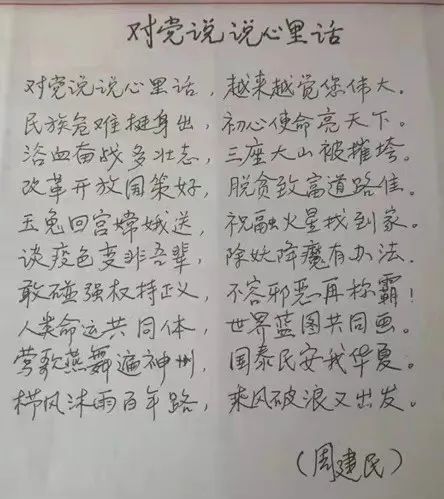 对党说说心里话
对党说说心里话，越来越觉您伟大。
民族危难挺身出，初心使命亮天下。
浴血奋战多壮志，三座大山被摧垮。
改革开放国策好，脱贫致富道路佳。
玉兔回宫嫦娥送，祝融火星找到家。
谈疫色变非吾辈，除妖降魔有办法。
敢碰强权持正义，不容邪恶再称霸！
人类命运共同体，世界蓝图共同画。
莺歌燕舞遍神州，国泰民安我华夏。
栉风沐雨百年路，乘风破浪又出发。
（周建民）